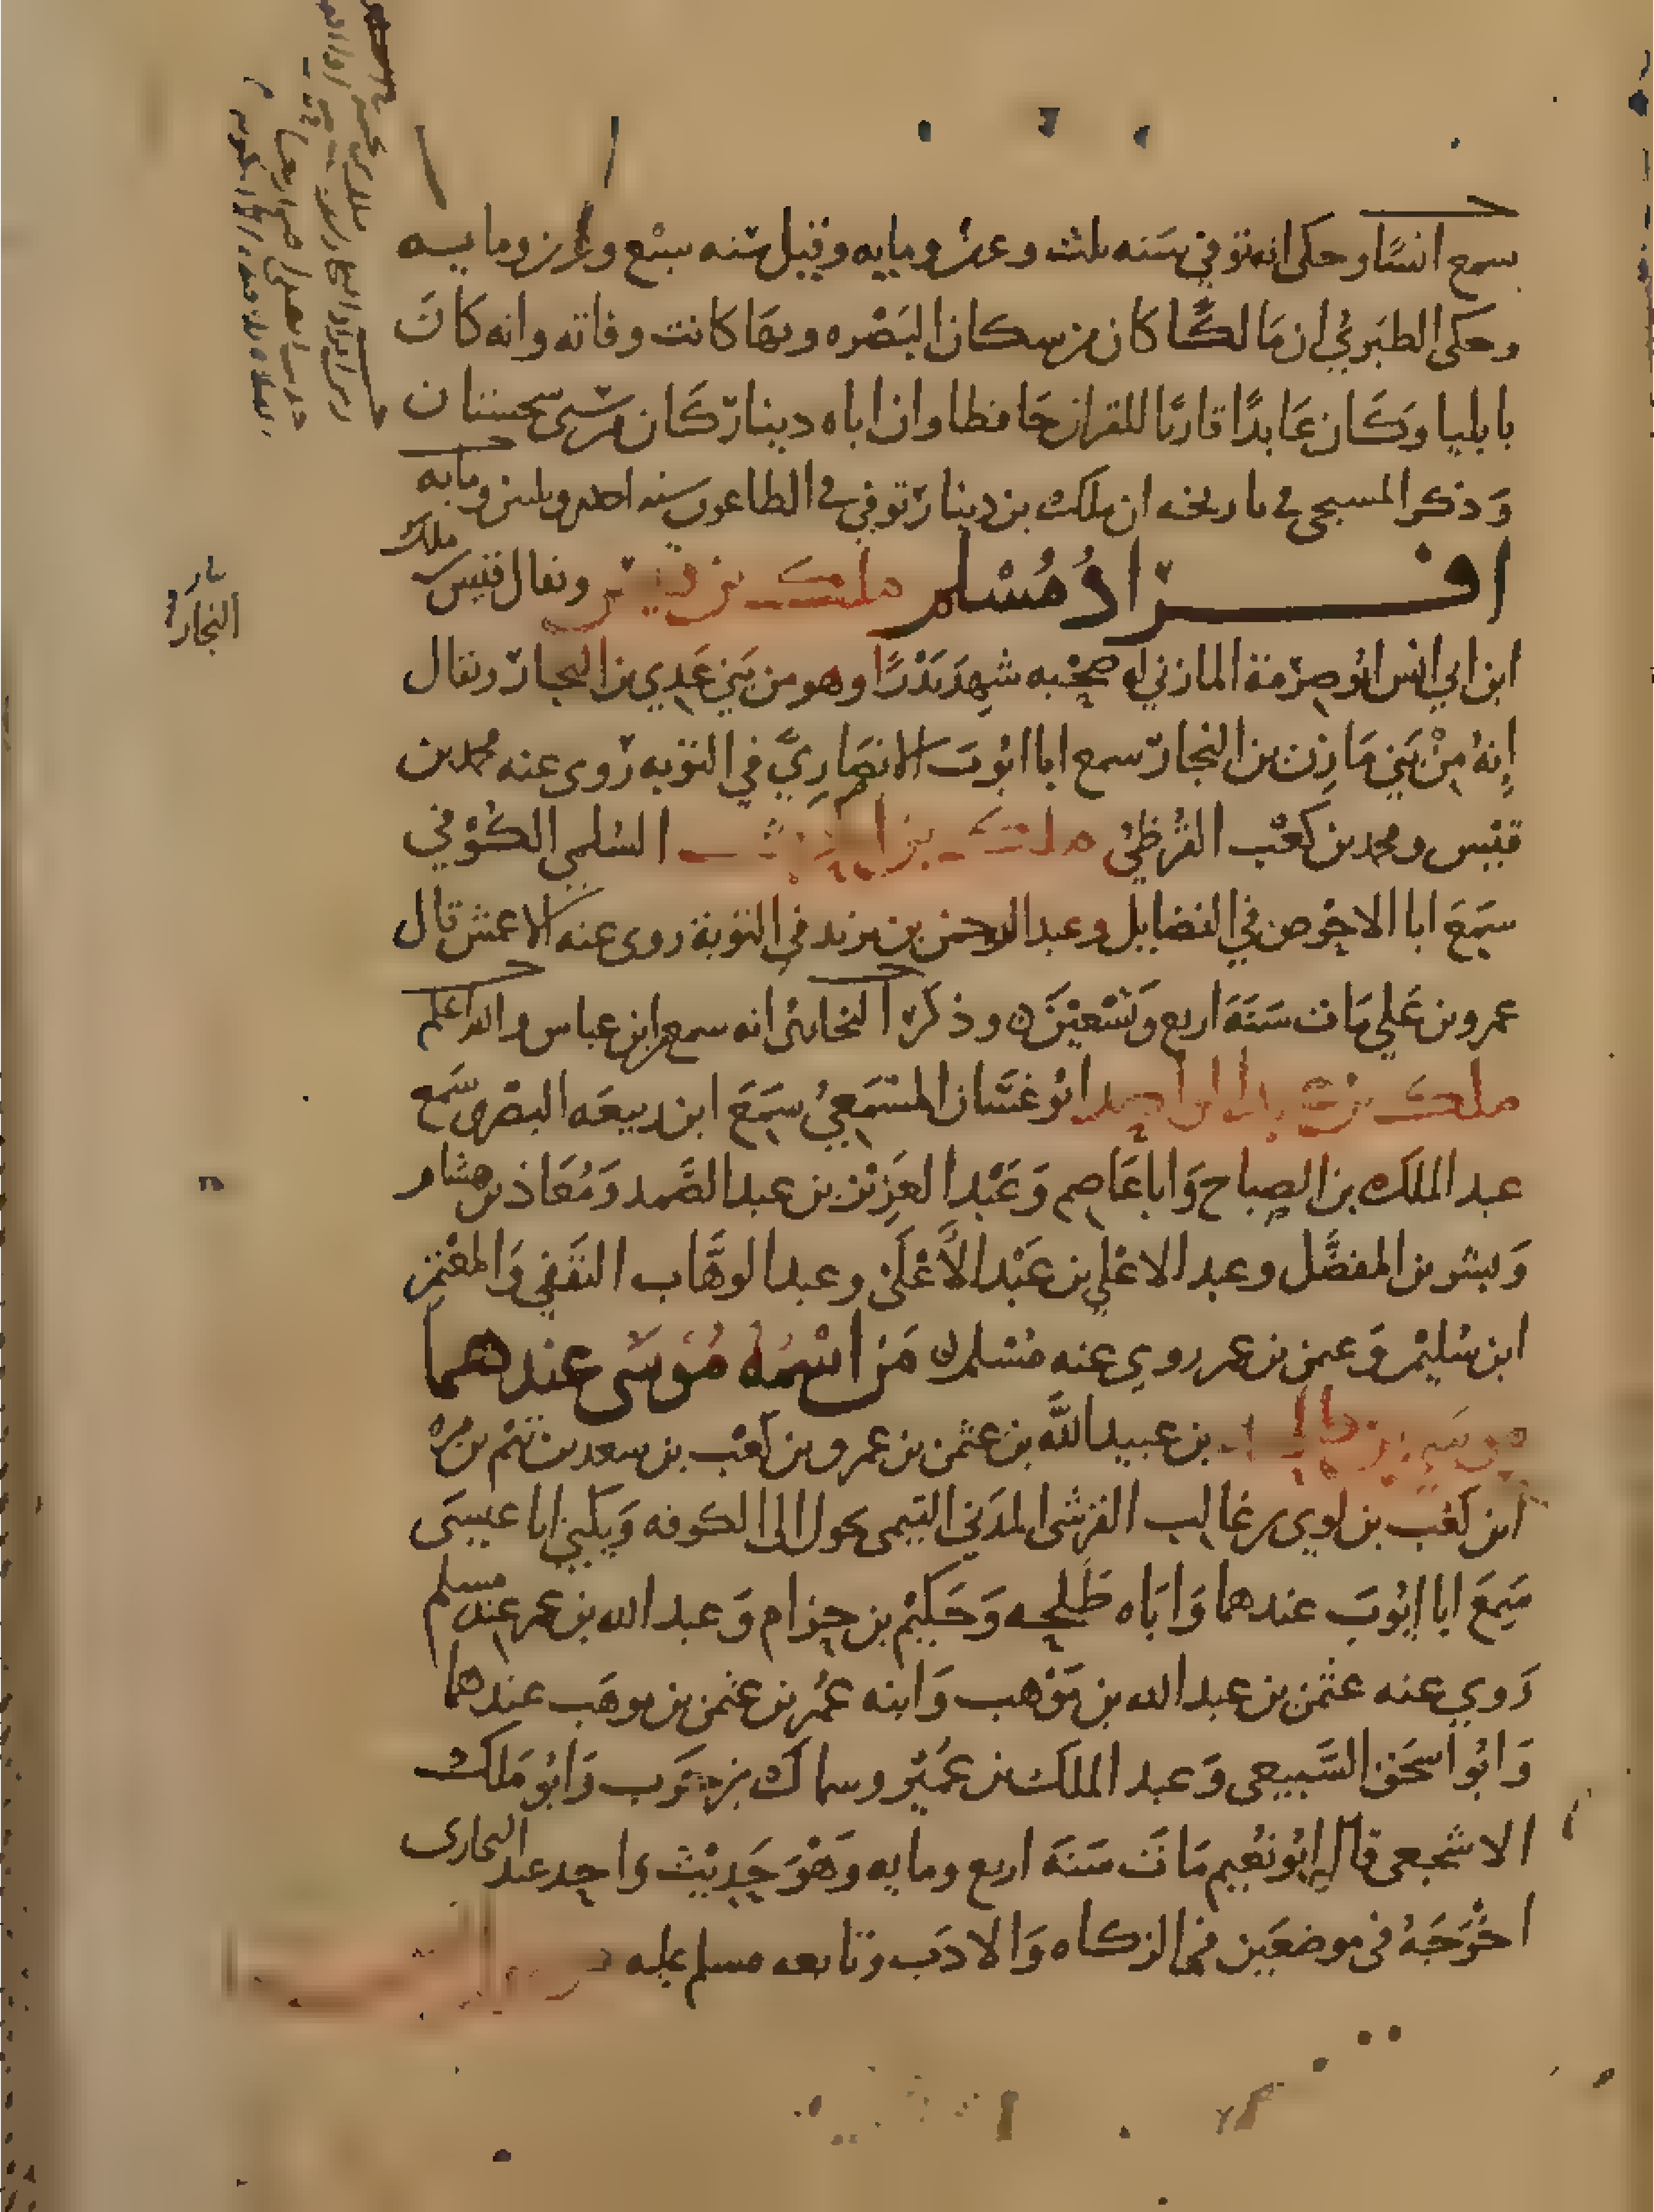 سمع انسًا وحكى انه توفي سَنه ثلث وعشر ومايه وقيل سنه سبْع وعشرين ومايه
وحكى الطبَريُّ ان مَالكًا كان من سكان البَصْره وبهَا كانت وفاته وانه كَانَ
وَكَان عَابدًا قاريًا للقران حَافظا وان اباه دينار كَان من سبي سجستان
وَذكر المسبحي في تاريخه ان ملك بن دينار توفي في الطاعون سنه احدى وثلثين ومايه
افراد مُسْلم ملك بن قيس ويقال قيس بن ملك
ابن ابي انس ابُو صِرْمة المازني له صُحْبه شهِدَ بَدْرًا وهو من بَني عَدِي بن النجار ويقال
إنهُ مِنْ بَني مَازِن بن النجار سمع ابا ايُّوبَ الانصَارِيَّ في التوبه رَوى عنه محمد بن
قيْس ومحمد بن كعْب القُرَظيُّ ملك بن الحرث السُلمي الكُوْفي
سَمِعَ ابا الاحْوص في الفضايل وعبد الرحمن بن يزيد في التوبة روى عنه الاعمش قال
عمرو بن عَلي مَات سَنَةَ اربع وَتسْعيْنَ وذكر البخاري انه سمع ابن عباس والله اعلم
ملك بن عبد الواحد ابُو غسَّان المسْمَعِيُّ سَمِعَ ابن ربيعَه البصْرى سَمع
عبد الملك بن الصباح وَابا عَاصِم وَعَبْد العَزِيْز بن عبد الصَّمد وَمُعَاذ بن هشام
وَبشر بن المفضَّل وعبد الاعْلي بن عَبْد الأَعْلَى وعبد الوهَّاب الثقَفي وَالمعْتمر
ابن سُليْم وَعمر بن عمر روي عنه مُسْلم مَن اسْمُهُ مُوْسَى عندهما
مُوسَى بن طلحة بن عبيد اللَّه بن عثمن بن عمرو بن كعْب بن سعد بن تيْم بن مُرَّه
ابن كَعْب بن لوي بن غالب القرشى المدَني التيمى تحول الى الكوفه وَيكني ابا عيسَى
سَمِعَ ابا ايُّوبَ عندهما وَابَاه طَلحه وَحَكيْم بن حزام وَعبد الله بن عمر عند مسلم
رَوي عنه عثمن بن عبد الله بن مَوْهب وَابنه عمُر بن عثمن بن موهَب عندهما
وَابُو اسحَق السَّبيعى وَعبد الملك بن عُميْر وسماك بن حَرب وَابُو مَلك
الاشجعى قال ابُو نُعيم مَاتَ سَنَةَ اربع ومايه وَهْوَ حَدِيْث واحد عند البخارى
اخْرَجَهُ فى موضعَين في الزكاه وَالادَب وتابعه مسلم عليه
النجار